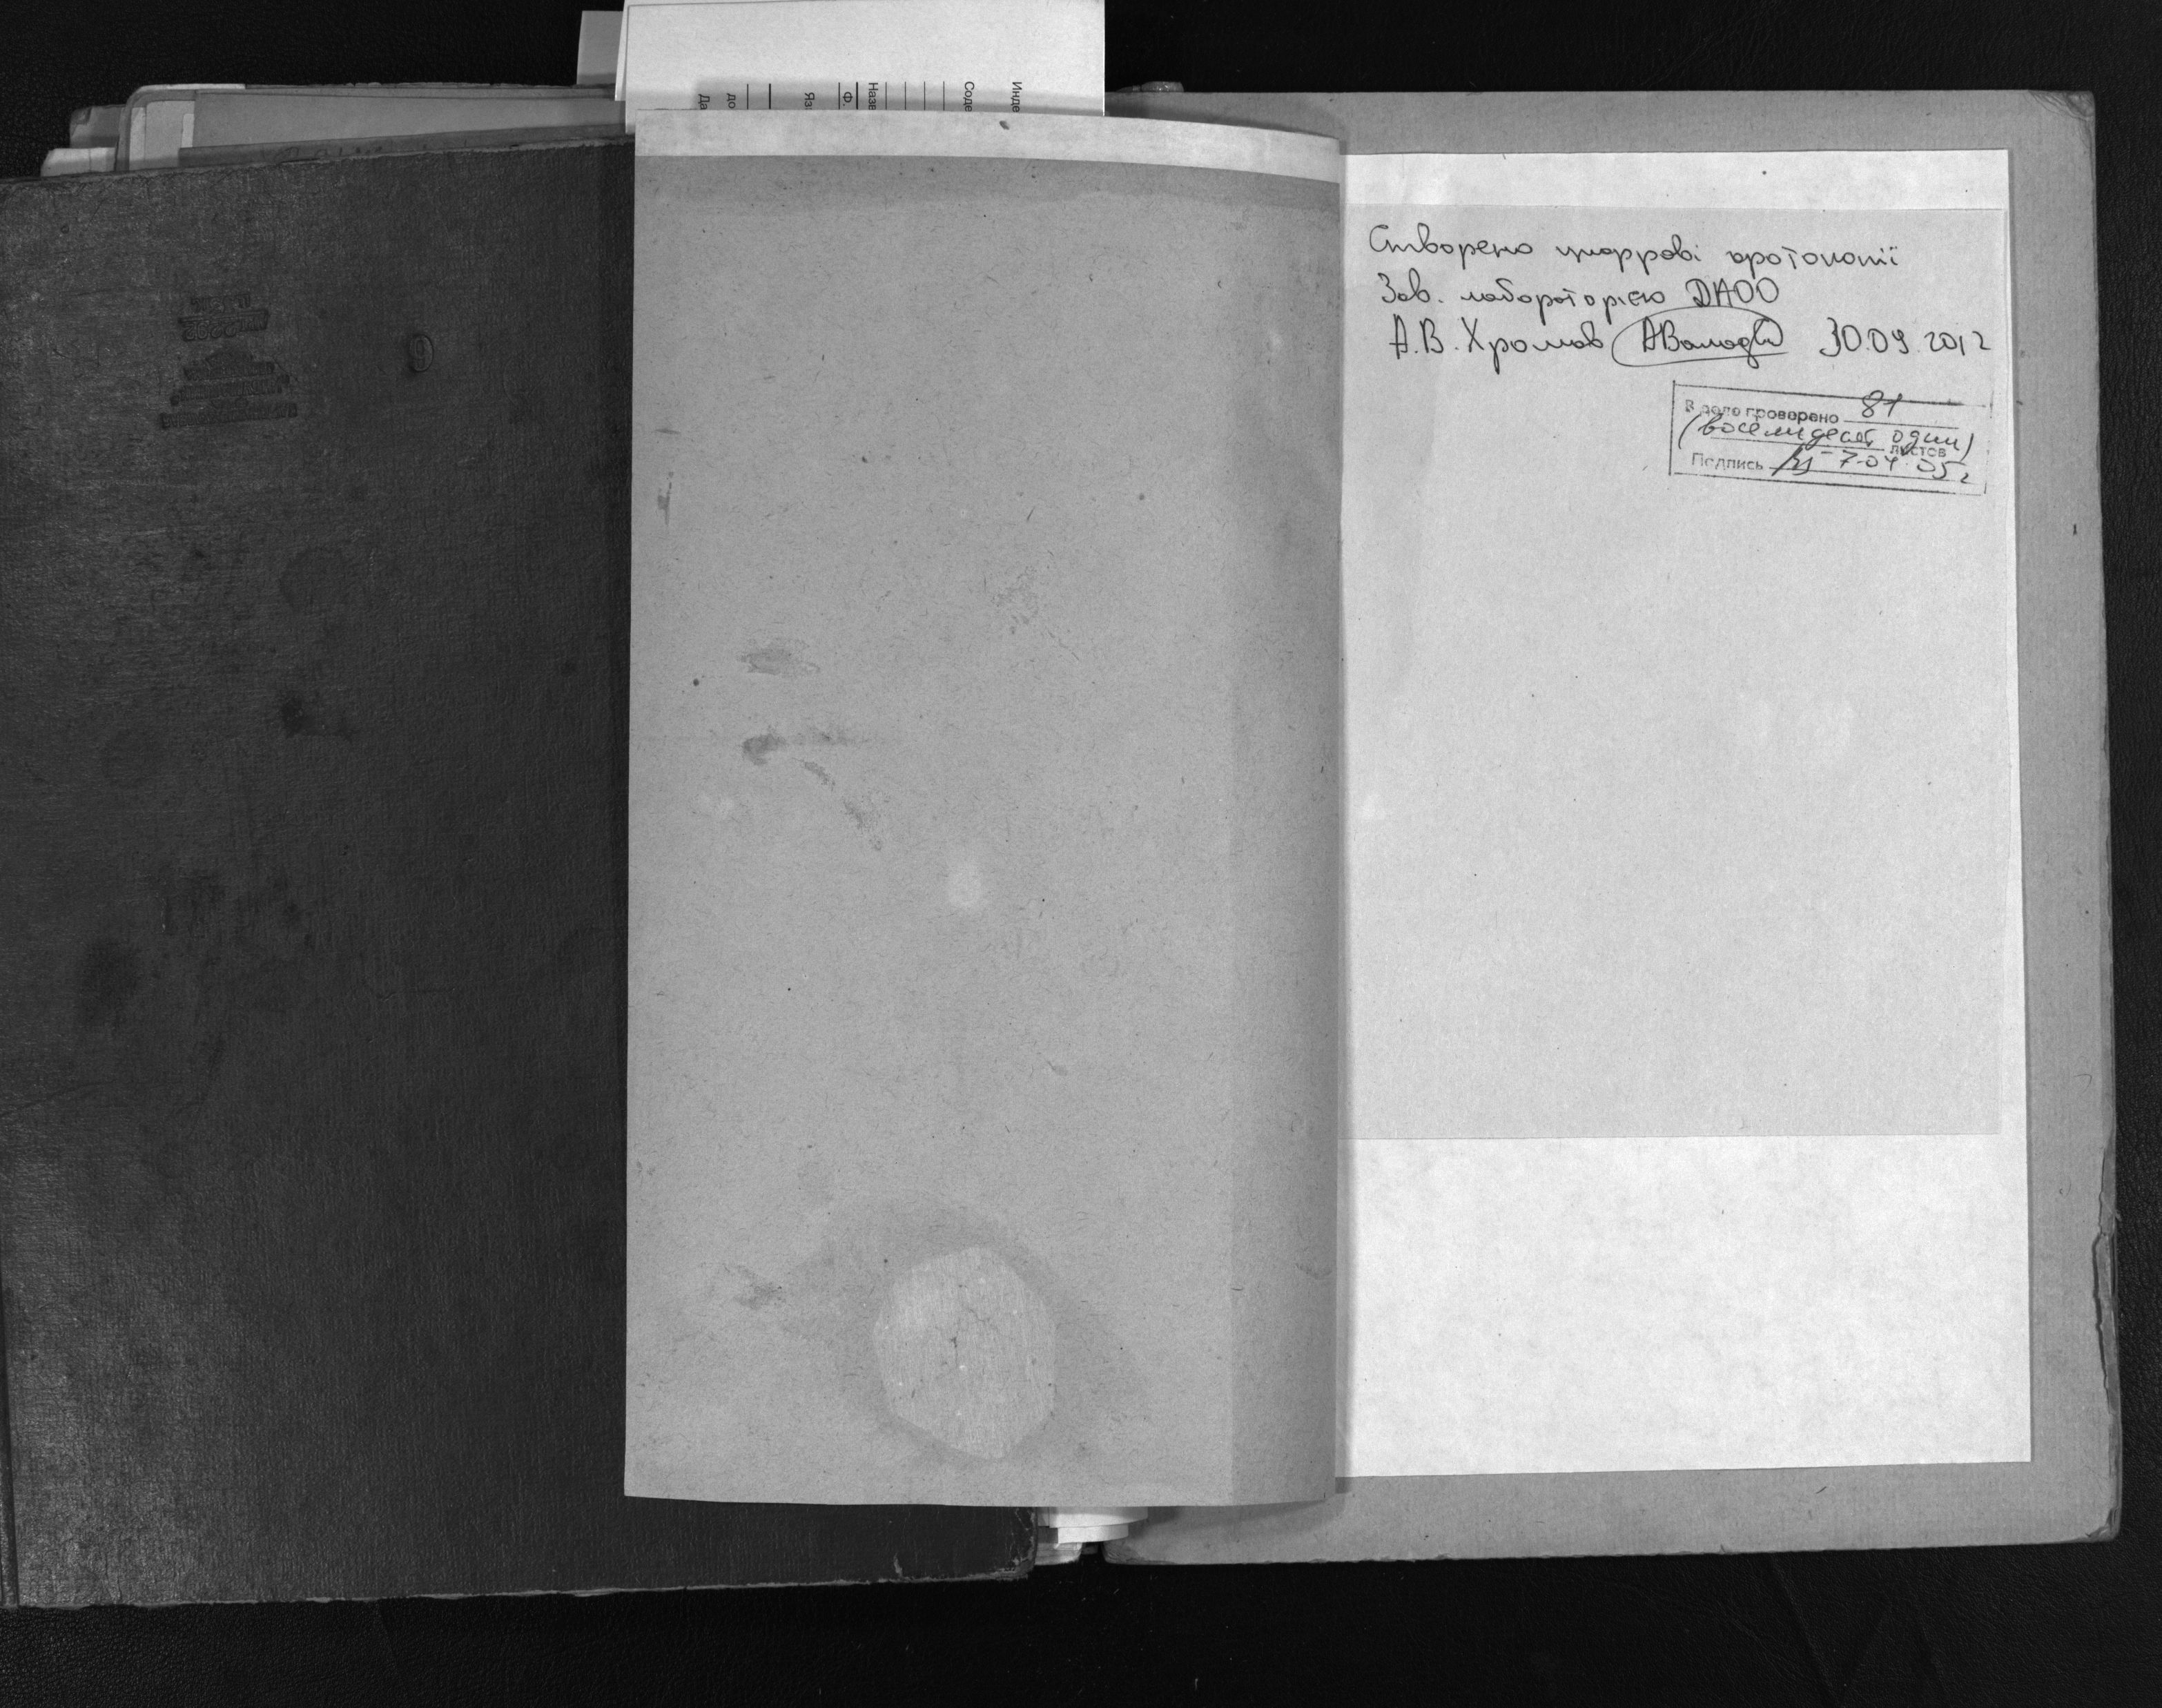 Инде
Соде
Назв
Ф.
Яз
до
Да
9
Створено цифрові фотокопії
Зав. лабораторією ДАОО
А.В. Хромов 30.09.2012
В деле проверено 81
(восемьдесят один)
листов
Подпись 7-04-05г